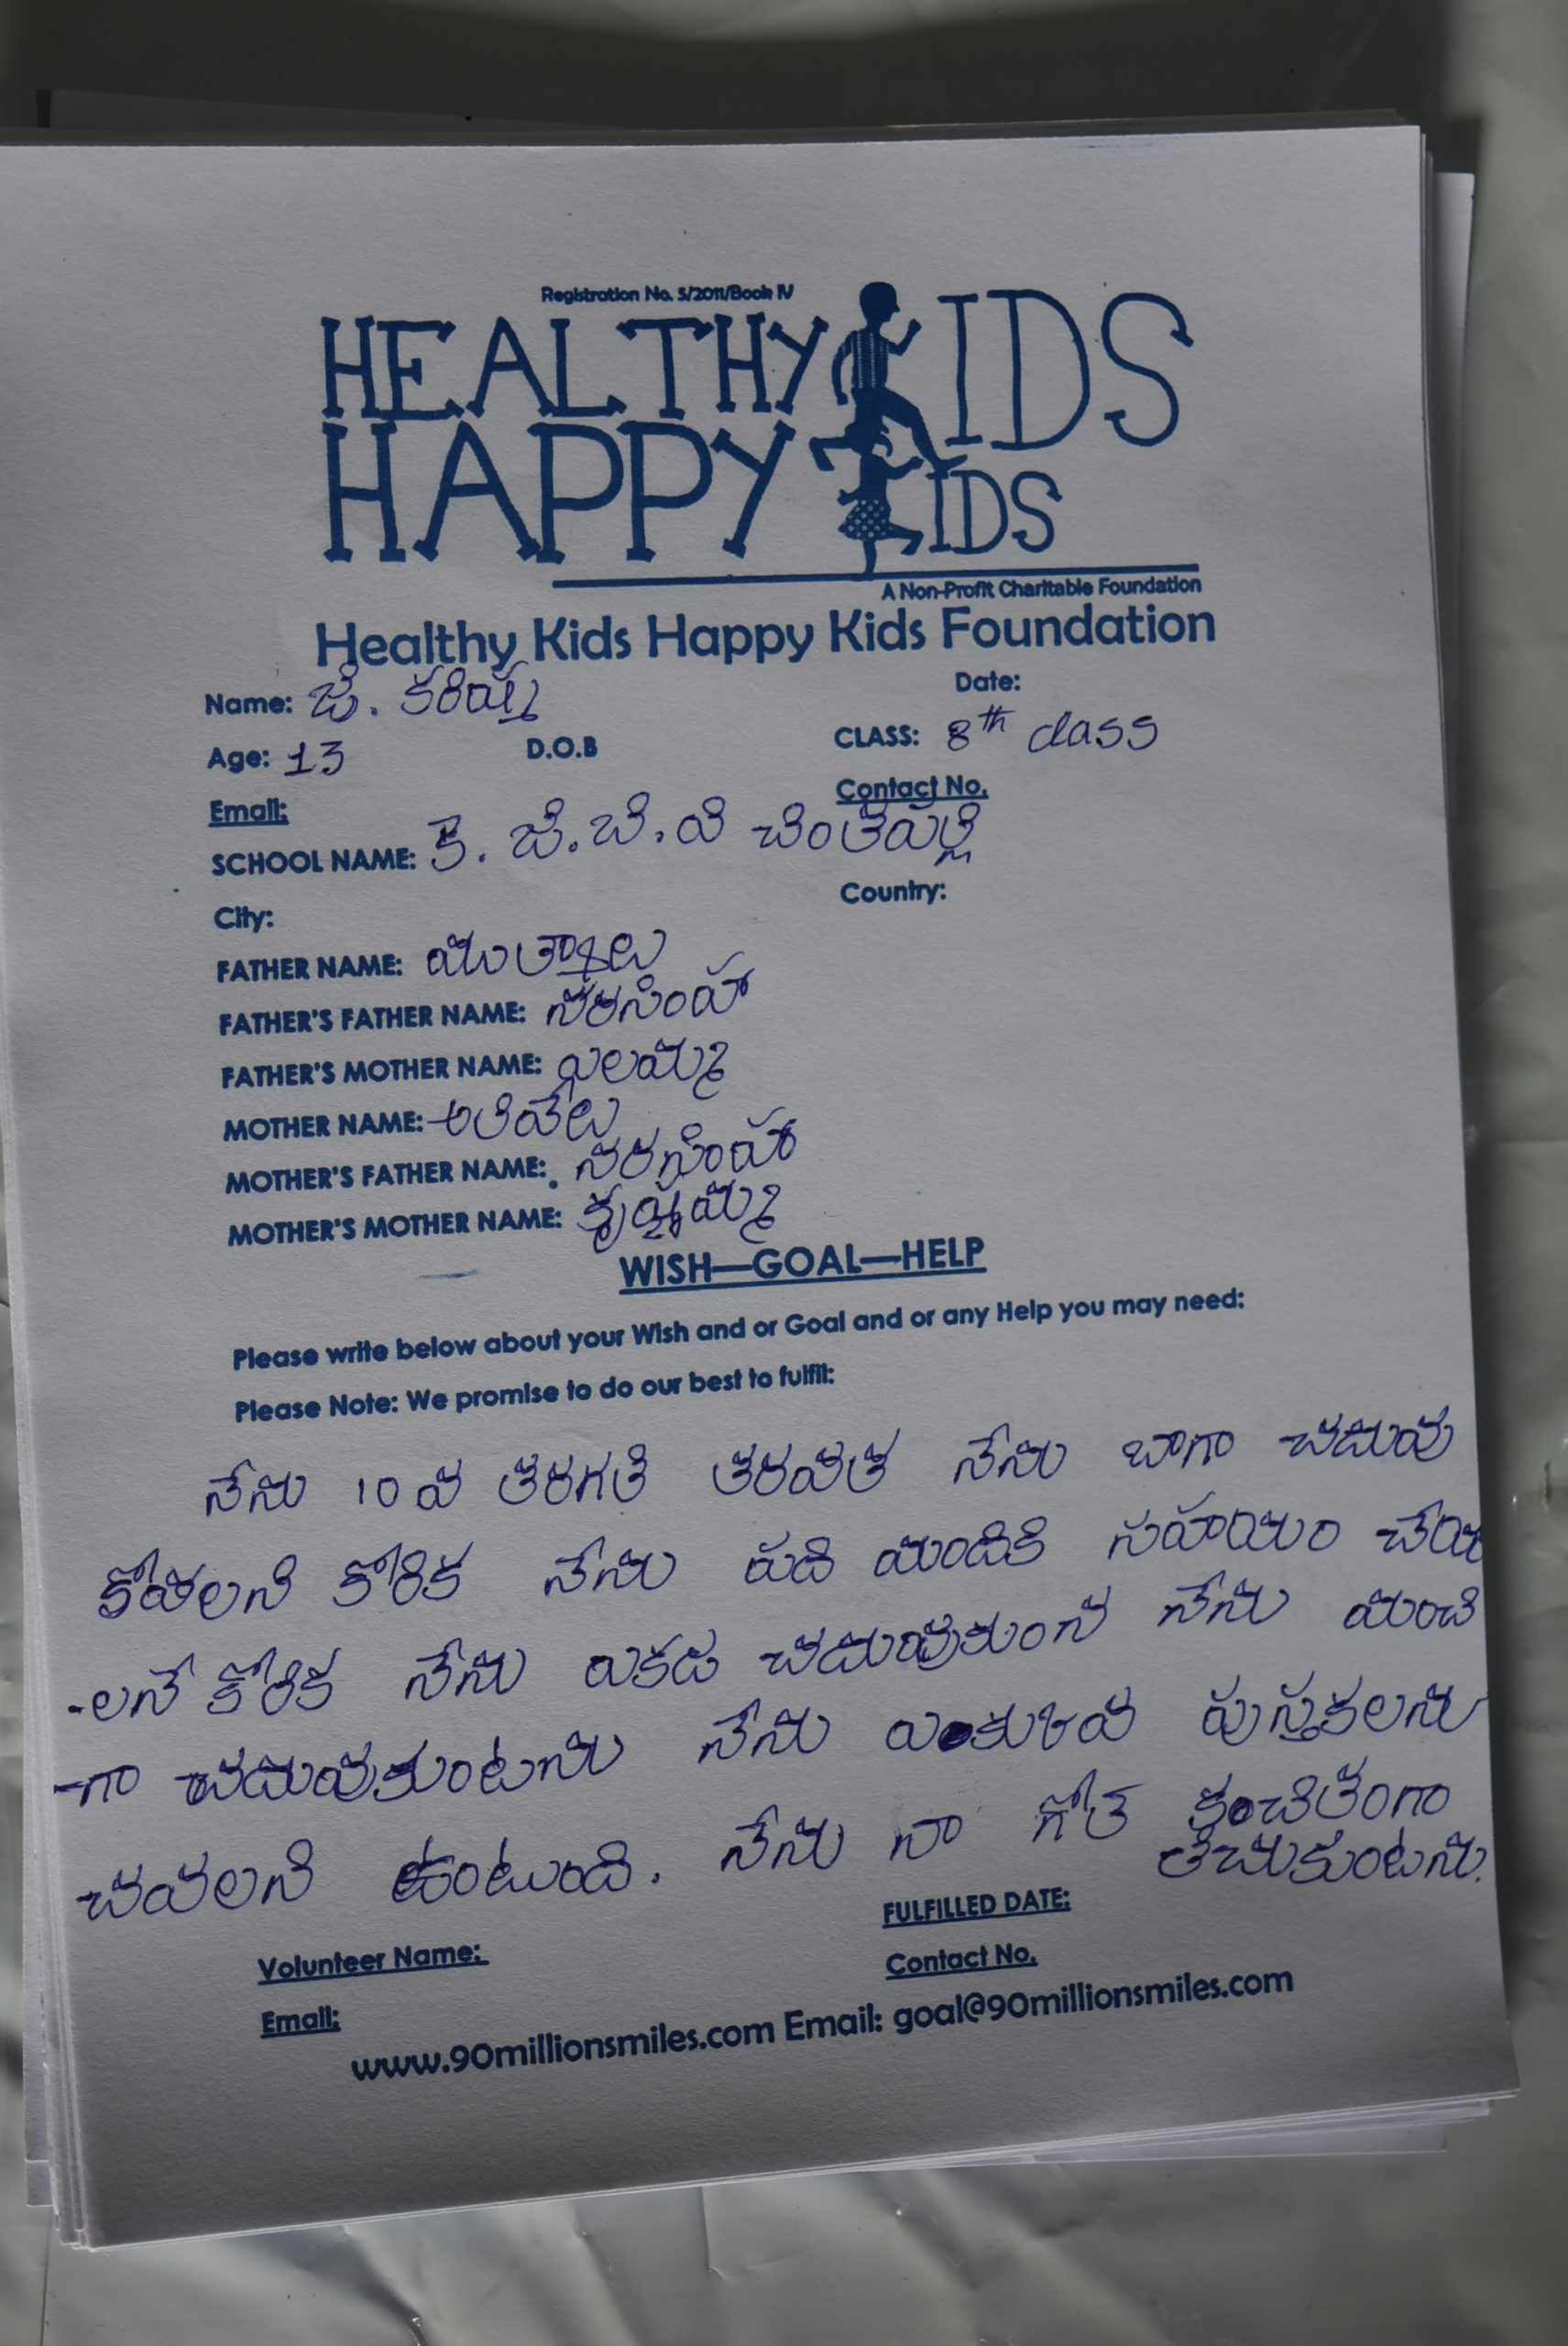 Registration No. 5/2011/Book IV
HEALTHY KIDS
HAPPY KIDS
A Non-Profit Charitable Foundation
Healthy Kids Happy Kids Foundation
Name: జె. కరిష్మ
Date:
Age: 13 D.O.B CLASS: 8th class
Email: Contact No.
SCHOOL NAME: కె. జె. బి. వి చింతపల్లి
City: Country:
FATHER NAME: ముత్యాలు
FATHER'S FATHER NAME: నరసింహా
FATHER'S MOTHER NAME:
MOTHER NAME: అలివేలు
MOTHER'S FATHER NAME: నరసింహా
MOTHER'S MOTHER NAME: కృష్ణమ్మ
WISH—GOAL—HELP
Please write below about your Wish and or Goal and or any Help you may need:
Please Note: We promise to do our best to fulfil:
నేను 10 వ తరగతి తరవత నేను బాగా చదువు
కోవలని కోరిక నేను పది మందికి సహాయం చేయ
-లనే కోరిక నేను ఇకడ చదువుకుంన నేను మంచి
-గా చదువుకుంటను నేను పుస్తకలను
చదవలని ఉంటుంది. నేను నా గోల్
Volunteer Name: FULFILLED DATE:
Email: Contact No.
www.90millionsmiles.com Email: goal@90millionsmiles.com